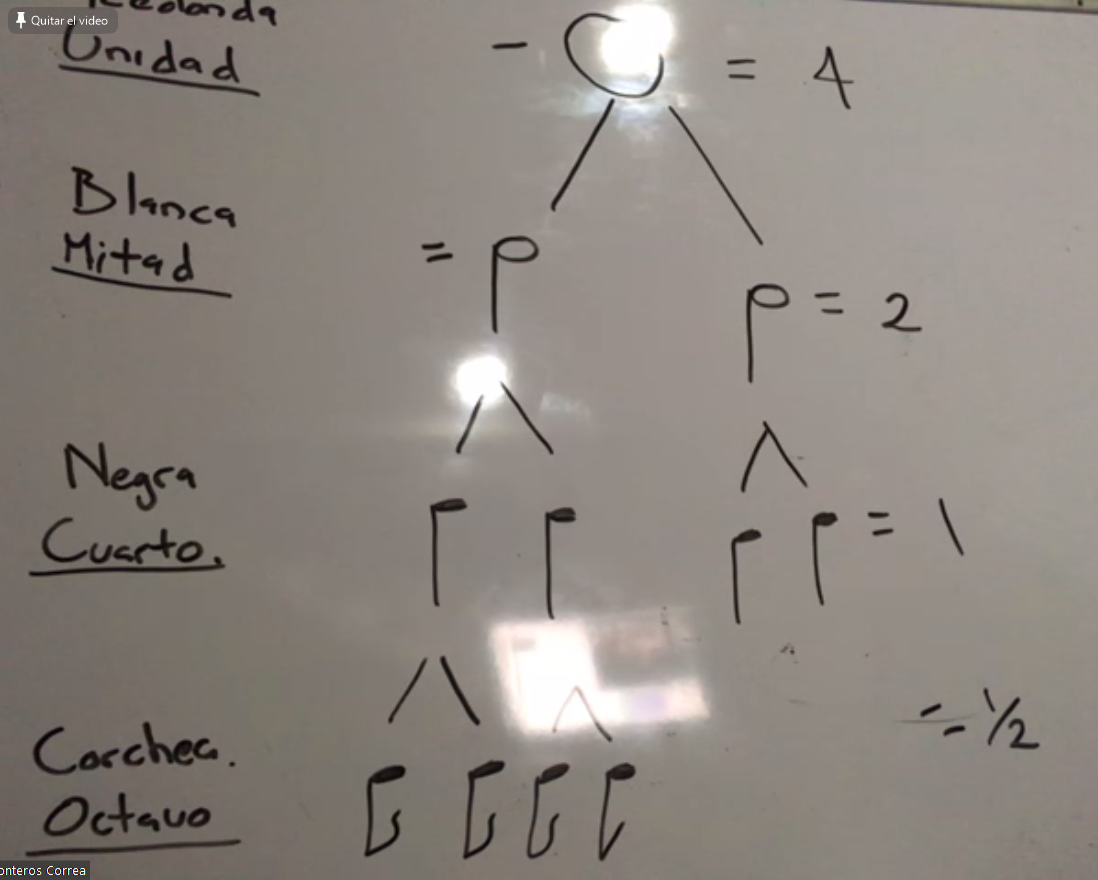 Quitar el video
Redonda
Unidad
- = 4
Blanca
Mitad
=
= 2
Negra
Cuarto.
= 1
= 1/2
Corchea.
Octavo
onteros Correa